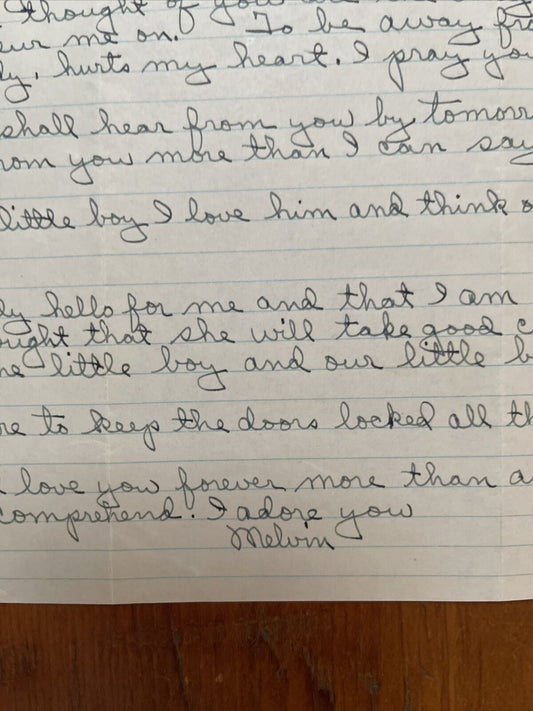 thought of you
eur me on. To be away fro
ly, hurts my heart. I pray you
shall hear from you by tomorr
rom you more than I can say
little boy I love him and think o
ly hello for me and that I am
ught that she will take good c
he little boy and our little b
re to keep the doors locked all th
love you forever more than a
comprehend. I adore you
Melvin